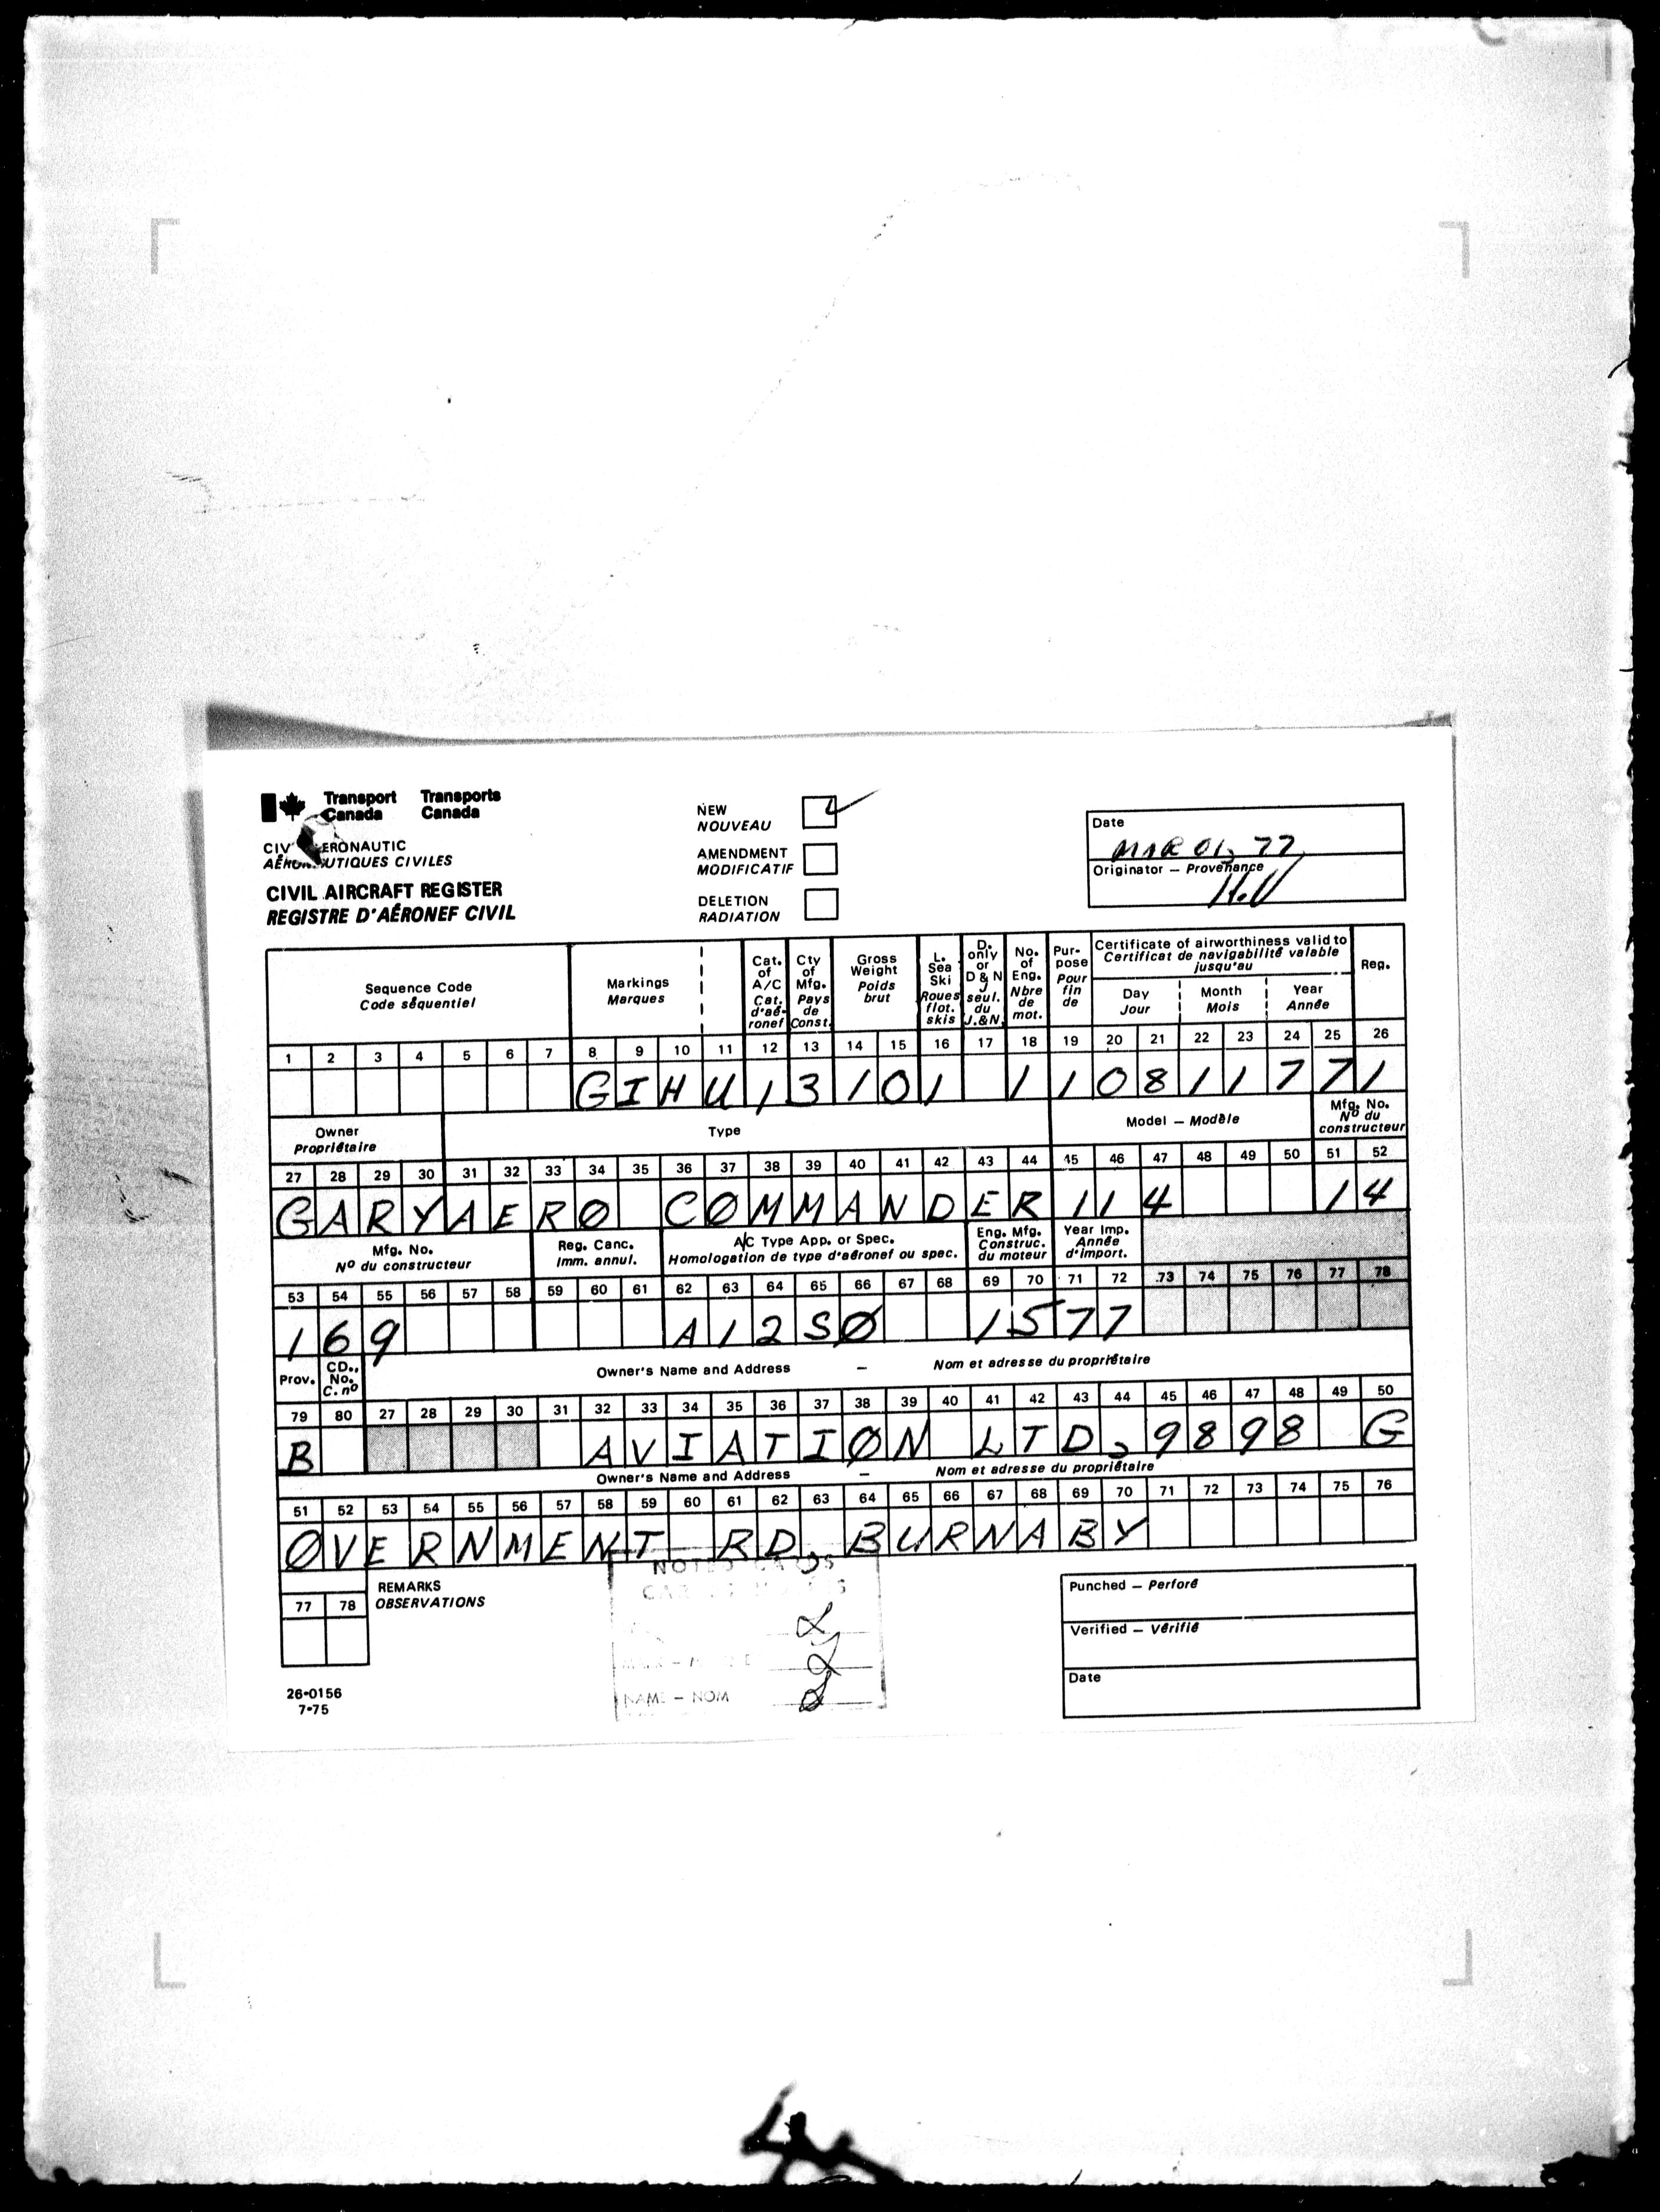 Transport Canada Transports Canada
AERONAUTIC
AÉRONAUTIQUES CIVILES
CIVIL AIRCRAFT REGISTER
REGISTRE D'AÉRONEF CIVIL
NEW
NOUVEAU
AMENDMENT
MODIFICATIF
DELETION
RADIATION
Date
MAR 01, 77
Originator – Provenance
H.V
Sequence Code
Code séquentiel
Markings
Marques
Cat. of A/C
Cat. d'aé-ronef
Cty of Mfg.
Pays de Const.
Gross Weight
Poids brut
L. Sea Ski
Roues flot. skis
D. only or D & N
J seul. du J.&N.
No. of Eng.
Nbre de mot.
Pur-pose
Pour fin de
Certificate of airworthiness valid to
Certificat de navigabilité valable jusqu'au
Day
Jour
Month
Mois
Year
Année
Reg.
1 2 3 4 5 6 7 8 9 10 11 12 13 14 15 16 17 18 19 20 21 22 23 24 25 26
G I H U 1 3 1 0 1 1 1 0 8 1 1 7 7 1
Owner
Propriétaire
Type
Model – Modèle
Mfg. No.
Nº du constructeur
27 28 29 30 31 32 33 34 35 36 37 38 39 40 41 42 43 44 45 46 47 48 49 50 51 52
G A R Y A E R Ø C Ø M M A N D E R 1 1 4 1 4
Mfg. No.
Nº du constructeur
Reg. Canc.
Imm. annul.
A/C Type App. or Spec.
Homologation de type d'aéronef ou spec.
Eng. Mfg.
Construc. du moteur
Year Imp.
Année d'import.
53 54 55 56 57 58 59 60 61 62 63 64 65 66 67 68 69 70 71 72 73 74 75 76 77 78
1 6 9 A 1 2 S Ø 1 5 7 7
Prov.
CD., No.
C. nº
Owner's Name and Address – Nom et adresse du propriétaire
79 80 27 28 29 30 31 32 33 34 35 36 37 38 39 40 41 42 43 44 45 46 47 48 49 50
B A V I A T I Ø N L T D , 9 8 9 8 G
Owner's Name and Address – Nom et adresse du propriétaire
51 52 53 54 55 56 57 58 59 60 61 62 63 64 65 66 67 68 69 70 71 72 73 74 75 76
Ø V E R N M E N T R D , B U R N A B Y
77 78
REMARKS
OBSERVATIONS
NAME – NOM
Punched – Perforé
Verified – Vérifié
Date
26-0156
7-75